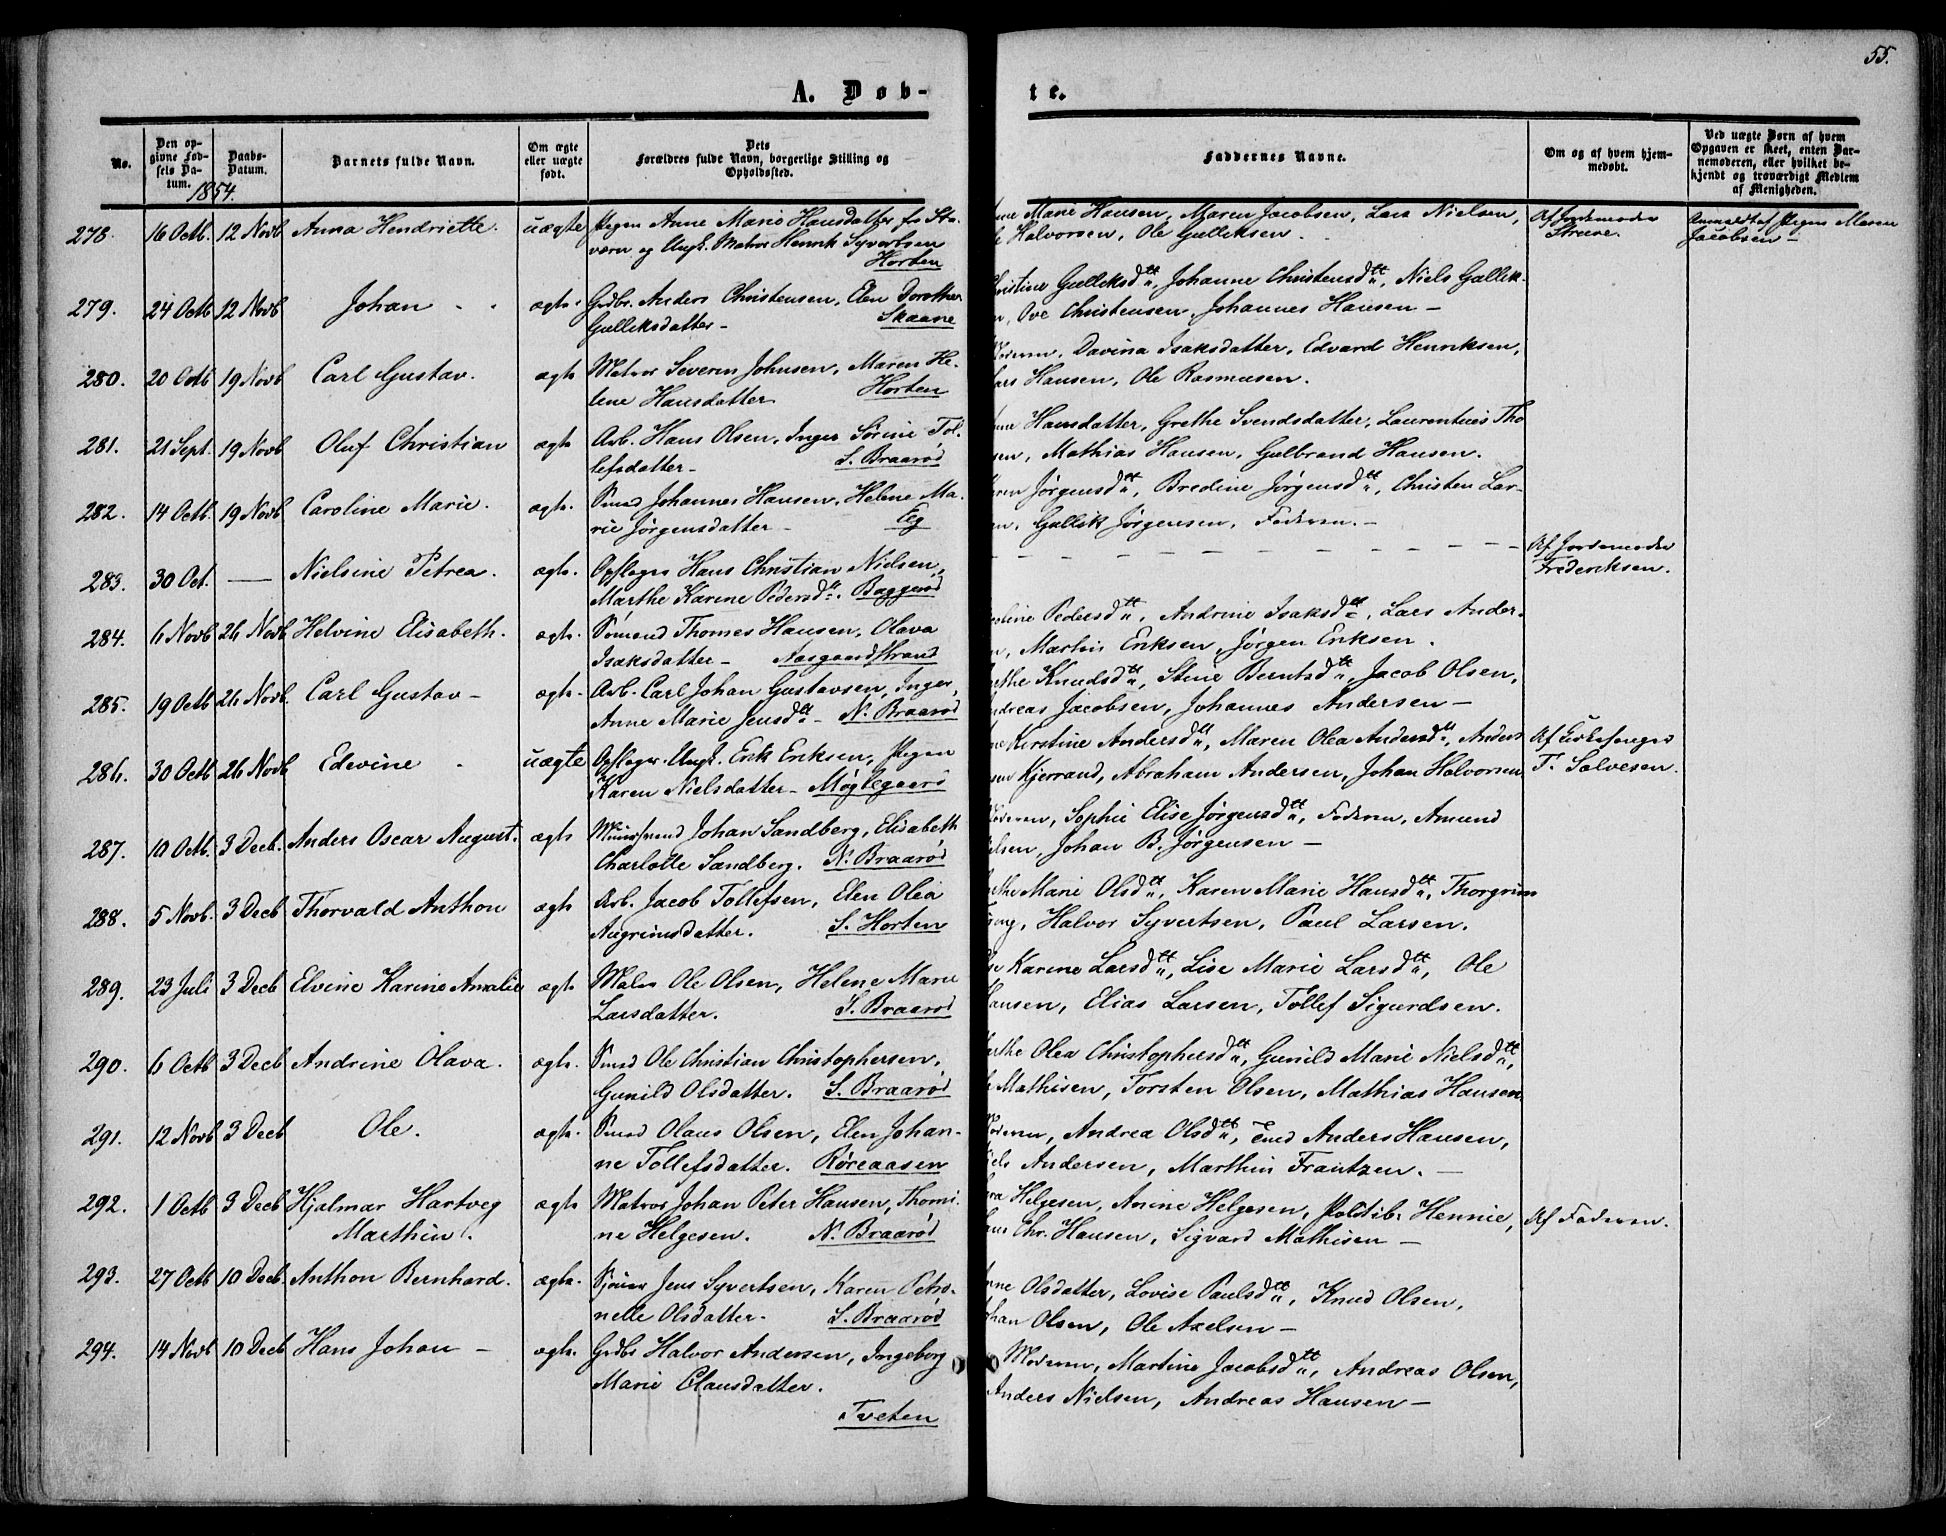 55.
A. Døb-
te.
No.
Den op-
givne Fød-
sels Da-
tum.
Daabs-
Datum.
Barnets fulde Navn.
Om ægte
eller uægte
født.
Dets
Forældres fulde Navn, borgerlige Stilling og
Opholdssted.
Faddernes Navne.
Om og af hvem hjem-
medøbt.
Ved uægte Børn af hvem
Opgaven er skeet, enten Bar-
nemoderen, eller hvilket be-
kjendt og troværdigt Medlem
af Menigheden.
1854.
278. 16 Octb. 12 Novb Anna Hendriette. uægte Pigen Anne Marie Hansdatter fr Sta-
værn og Ungk. Matros Henrik Syvertsen
Horten
Marie Hansen, Maren Jacobsen, Lars Nielsen,
Halvorsen, Ole Gulliksen.
Af Jordemoder
Struve.
Anmeldt af Pigen Maren
Jacobsen –
279. 24 Octb 12 Novb Johan ægte Gdbr. Anders Christensen, Elen Dorothea
Gulleksdatter – Skaane
Gulleksdtt, Johanne Christensdtt, Niels Gullik-
Ove Christensen, Johannes Hansen –
280. 20 Octb 19 Novb Carl Gustav. ægte Matros Severin Johnsen, Maren He-
lene Hansdatter Horten
Moderen, Davina Isaksdatter, Edvard Henriksen,
Lars Hansen, Ole Rasmusen.
281. 21 Sept. 19 Novb Oluf Christian ægte Arb. Hans Olsen, Inger Sørine Tol-
lefsdatter – S. Braarød
Hansdatter, Grethe Svendsdatter, Laurentius Tho
sen, Mathias Hansen, Gulbrand Hansen.
282. 14 Octb. 19 Novb Caroline Marie. ægte. Smed Johannes Hansen, Helene Ma-
rie Jørgensdatter – Eeg
Jørgensdtt, Bredine Jørgensdtt, Christen Lar-
Gullik Jørgensen, Faderen. –
283. 30 Oct. — Nielsine Petrea. ægte. Opsloger Hans Christian Nielsen,
Marthe Karine Pedersdtt. Baggerød
Af Jordemoder
Frederiksen.
284. 6 Novb 26 Novb Helvine Elisabeth. ægte. Sømand Thomas Hansen, Olava
Isaksdatter – Aasgaardstrand
Pedersdtt, Andrine Isaksdtt, Lars Ander-
Martin Eriksen, Jørgen Eriksen.
285. 19 Octb 26 Novb. Carl Gustav – ægte. Arb. Carl Johan Gustavsen, Inger
Anne Marie Jensdtt – N. Braarød
Knudsdtt, Stine Berntsdtt, Jacob Olsen,
Andreas Jacobsen, Johannes Andersen –
286. 30 Octb 26 Novb Edevine uægte Opsloger Ungk. Erik Eriksen, Pigen
Karen Nielsdatter – Møglegaard
Kirstine Andersdtt, Maren Olea Andersdtt, Anders
Kjerrand, Abraham Andersen, Johan Halvorsen
Af Kirkesanger
T. Salvesen.
287. 10 Octb. 3 Decb. Anders Oscar August. ægte Muursvend Johan Sandberg, Elisabeth
Charlotte Sandberg. N. Braarød
Moderen, Sophie Elise Jørgensdtt, Faderen, Amund
Nielsen, Johan B. Jørgensen –
288. 5 Novb. 3 Decb Thorvald Anthon ægte Arb. Jacob Tollefsen, Elen Olea
Angrimsdatter. S. Horten
Marie Olsdtt, Karen Marie Hansdtt, Thorgrim
Halvor Syvertsen, Paul Larsen.
289. 23 Juli 3 Decb Elvine Karine Amalie ægte Ole Olsen, Helene Marie
Larsdatter. S. Braarød
Karine Larsdtt, Lise Marie Larsdtt, Ole
Hansen, Elias Larsen, Tollef Sigurdsen.
290. 6 Octb 3 Decb Andrine Olava. ægte. Smed Ole Christian Christophersen,
Gunild Olsdatter. S. Braarød
Olea Christophersdtt, Gunild Marie Nielsdtt,
Mathisen, Torsten Olsen, Mathias Hansen
291. 12 Novb 3 Decb Ole. ægte. Smed Olaus Olsen, Elen Johan-
ne Tollefsdatter. Røreaasen
Moderen, Andrea Olsdtt, Smed Anders Hansen,
Andersen, Marthin Frantzen. –
292. 1 Octb 3 Decb Hjalmar Hartveg
Marthin. ægte Matros Johan Peter Hansen, Thomi-
ne Helgesen. N. Braarød
Helgesen, Anine Helgesen, Politib. Hennie,
Chr. Hansen, Sigvard Mathisen –
Af Faderen.
293. 27 Octb 10 Decb. Anthon Bernhard. ægte. Jens Syvertsen, Karen Petro-
nelle Olsdatter. S. Braarød
Olsdatter, Lovise Paulsdtt, Knud Olsen,
Johan Olsen, Ole Axelsen –
294. 14 Novb 10 Decb Hans Johan – ægte. Gdbr Halvor Andersen, Ingeborg
Marie Clausdatter.
Tveten
Moderen, Martine Jacobsdtt, Andreas Olsen,
Anders Nielsen, Andreas Hansen –